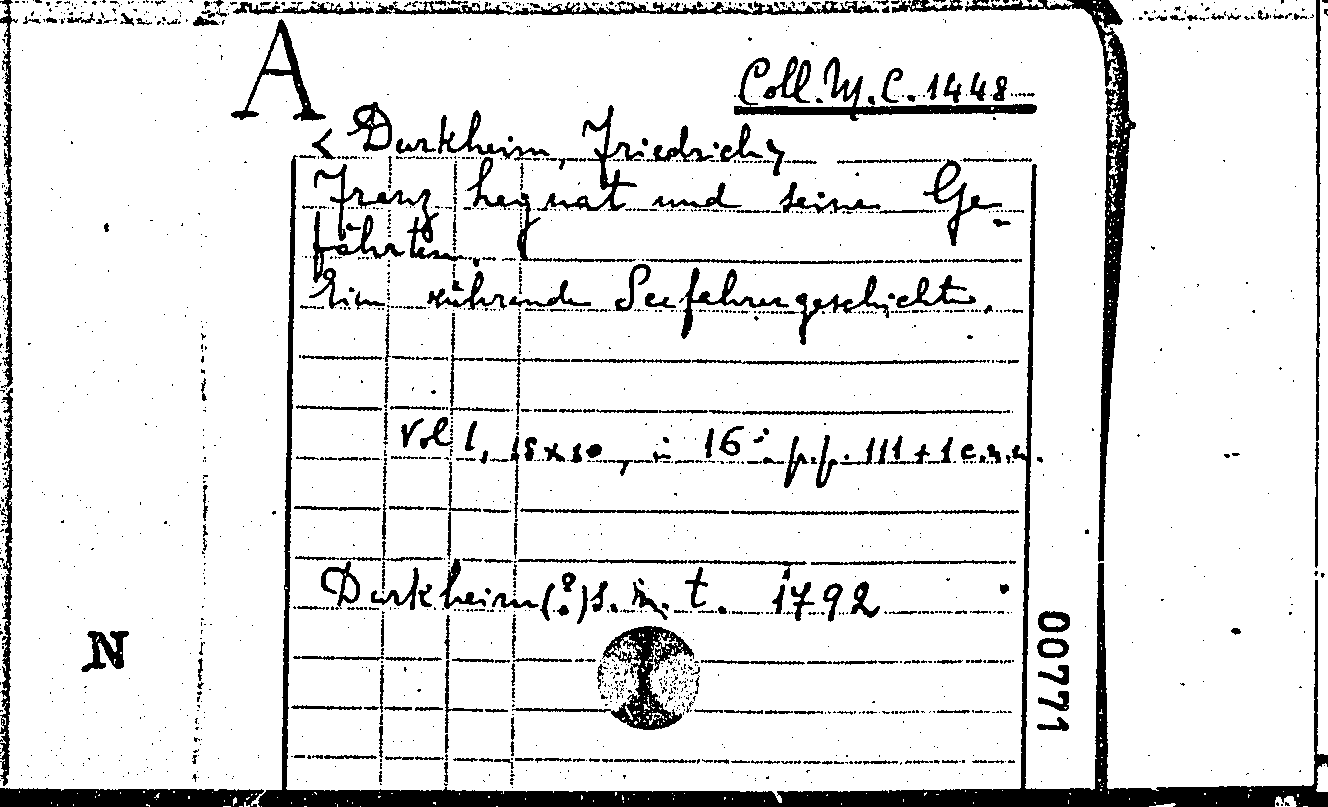 A
Coll. M. C. 1448
< Durkheim, Friedrich>
Franz hegnat und seine Ge-
fährten.
Eine rührende Seefahrergeschichte.
Vol 1, 15x10, in 16° p.p. 111 + 1 c.n.n.
Durkheim (?) s. n. t. 1792
N
007771